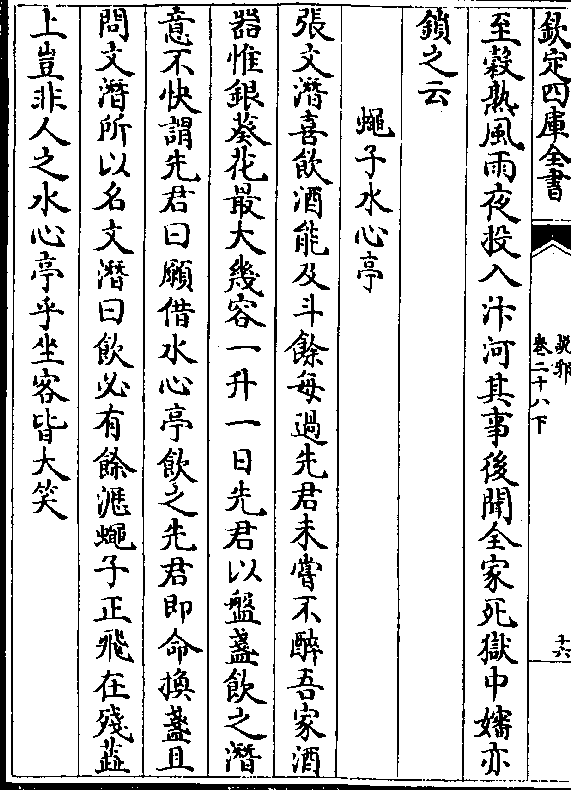 欽定四庫全書
說郛
卷二十八下
十六
至穀熟風雨夜投入汴河其事後聞全家死獄中嬸亦
鎖之云
蠅子水心亭
張文潛喜飲酒能及斗餘每過先君未嘗不醉吾家酒
器惟銀葵花最大幾容一升一日先君以盤盞飲之潛
意不快謂先君曰願借水心亭飲之先君即命換盞且
問文潛所以名文潛曰飲必有餘瀝蠅子正飛在殘蕋
上豈非人之水心亭乎坐客皆大笑